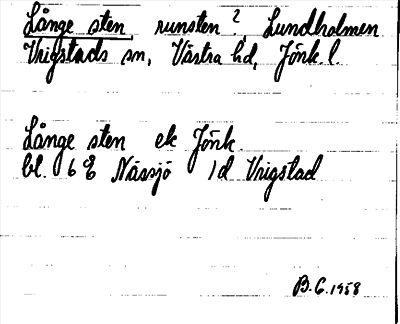 Långe sten runsten?, Lundholmen
Vrigstads sn, Västra hd, Jönk. l.
Långe sten ek Jönk.
bl. 6E Nässjö 1d Vrigstad
B.G. 1958